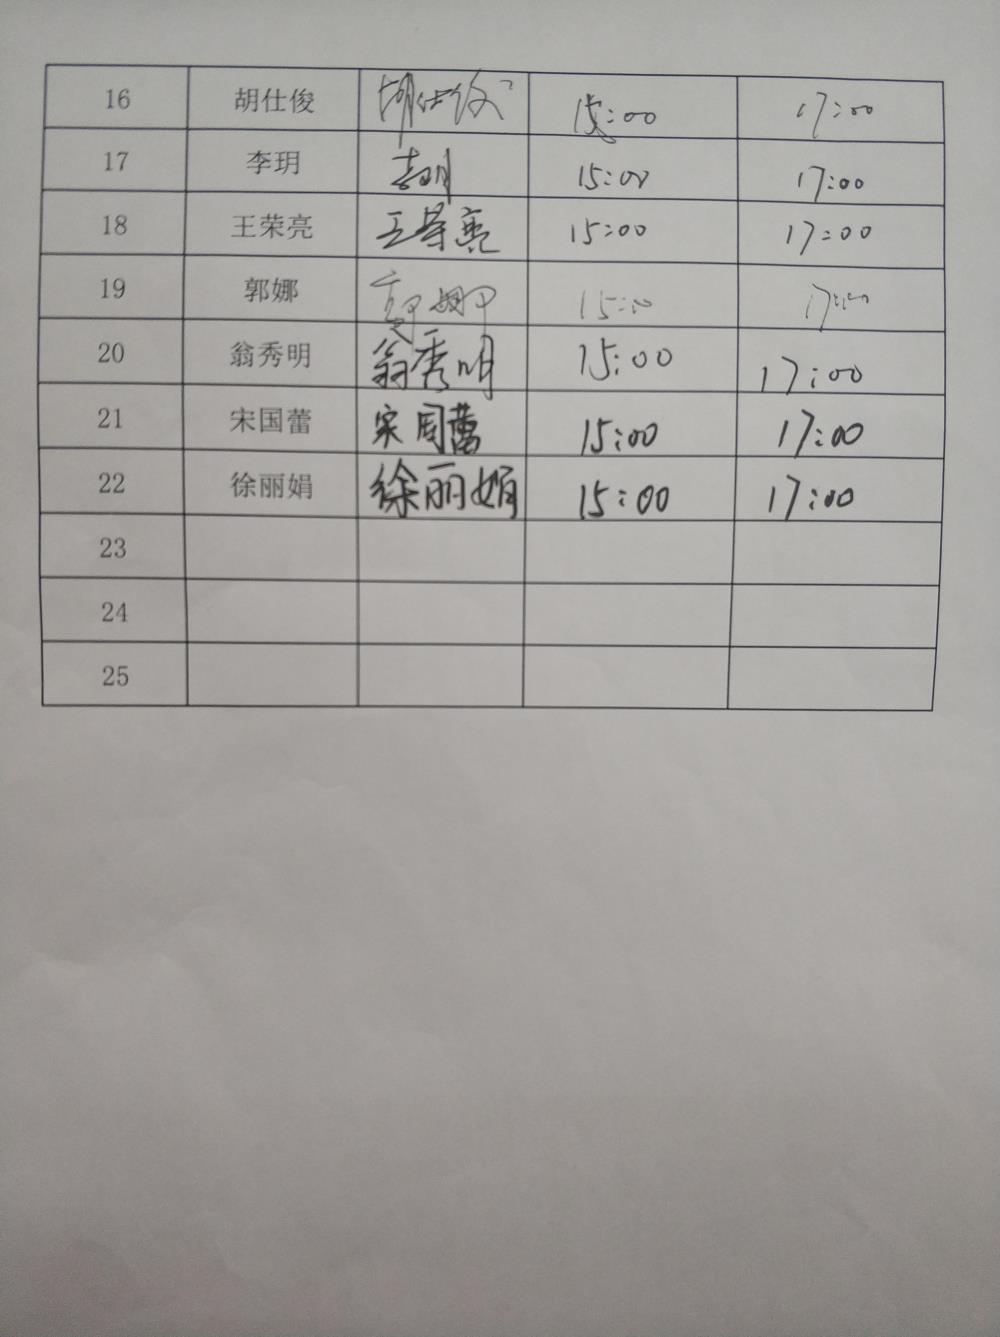 16 胡仕俊 胡仕俊 15:00 17:00
17 李玥 李玥 15:00 17:00
18 王荣亮 王荣亮 15:00 17:00
19 郭娜 郭娜 15:00 17:00
20 翁秀明 翁秀明 15:00 17:00
21 宋国蕾 宋国蕾 15:00 17:00
22 徐丽娟 徐丽娟 15:00 17:00
23
24
25